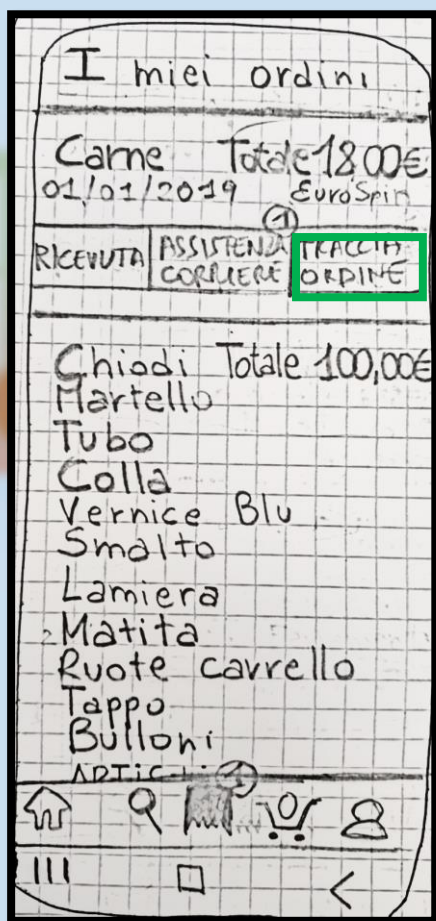 I miei ordini
Carne Totale 18,00€
01/01/2019 EuroSpin
1
RICEVUTA ASSISTENZA CORRIERE TRACCIA ORDINE
Chiodi Totale 100,00€
Martello
Tubo
Colla
Vernice Blu
Smalto
Lamiera
Matita
Ruote carrello
Tappo
Bulloni
1
0